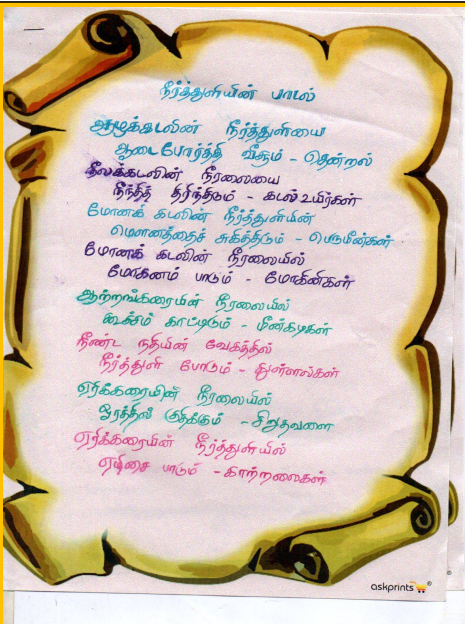 நீர்த்துளியின் பாடல்
ஆழக்கடலின் நீர்த்துளியை
ஆடைபோர்த்தி வீசும் - தென்றல்
நீலக்கடலின் நீரலையை
நீந்தித் திரிந்திடும் - கடல் உயிர்கள்
மோனக் கடலின் நீர்த்துளியின்
மௌனத்தைச் சுகித்திடும் - பெருமீன்கள்
மோனக் கடலின் நீரலையில்
மோகனம் பாடும் - மோகினிகள்
ஆற்றங்கரையின் நீரலையில்
கூச்சம் காட்டிடும் - மீன்கடிகள்
நீண்ட நதியின் வேகத்தில்
நீர்த்துளி போடும் - துள்ளல்கள்
ஏரிக்கரையின் நீரலையில்
ஓரத்தில் குதிக்கும் - சிறுதவளை
ஏரிக்கரையின் நீர்த்துளியில்
ஏழிசை பாடும் - காற்றலைகள்
askprints